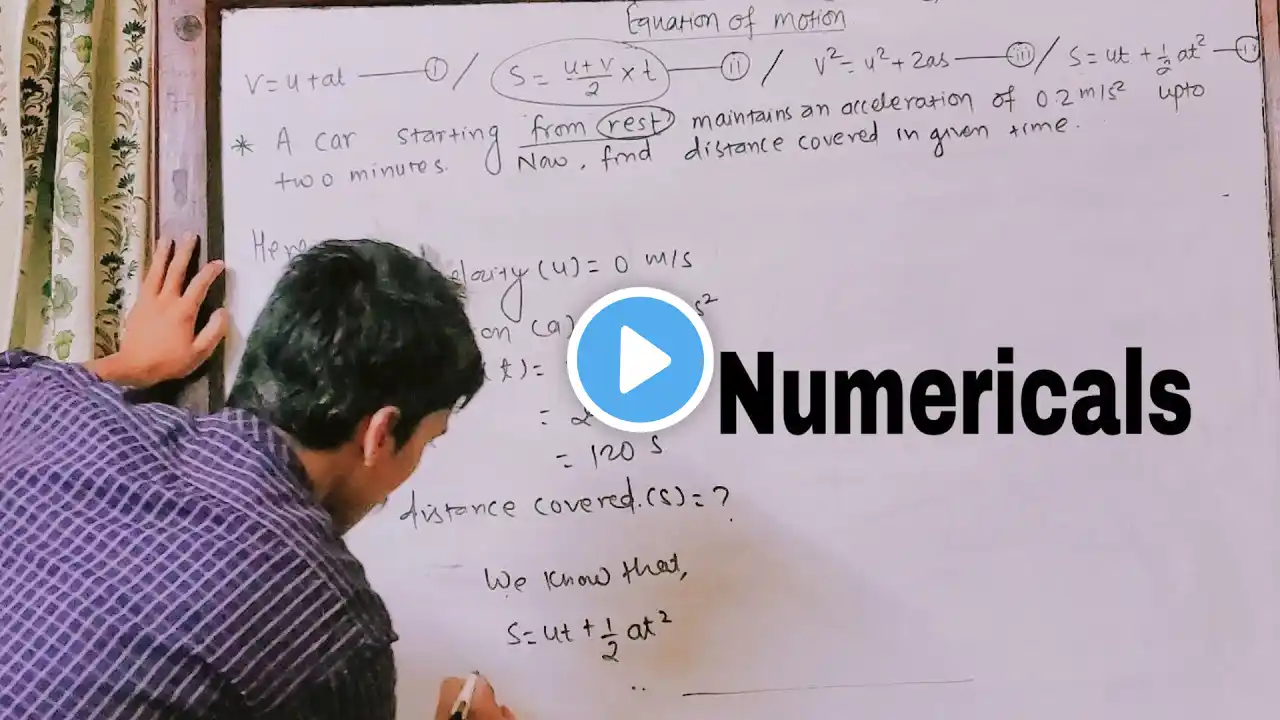 Equation of motion
V = u + at ——— (i) / S = (u+v)/2 × t ——— (ii) / v² = u² + 2as ——— (iii) / S = ut + 1/2 at² —
* A car starting from rest maintains an acceleration of 0.2 m/s² upto
two minutes. Now, find distance covered in given time.
Here
(u) = 0 m/s
on (a) s²
t) =
Numericals
=
= 120 s
distance covered.(s) = ?
We know that,
S = ut + 1/2 at²